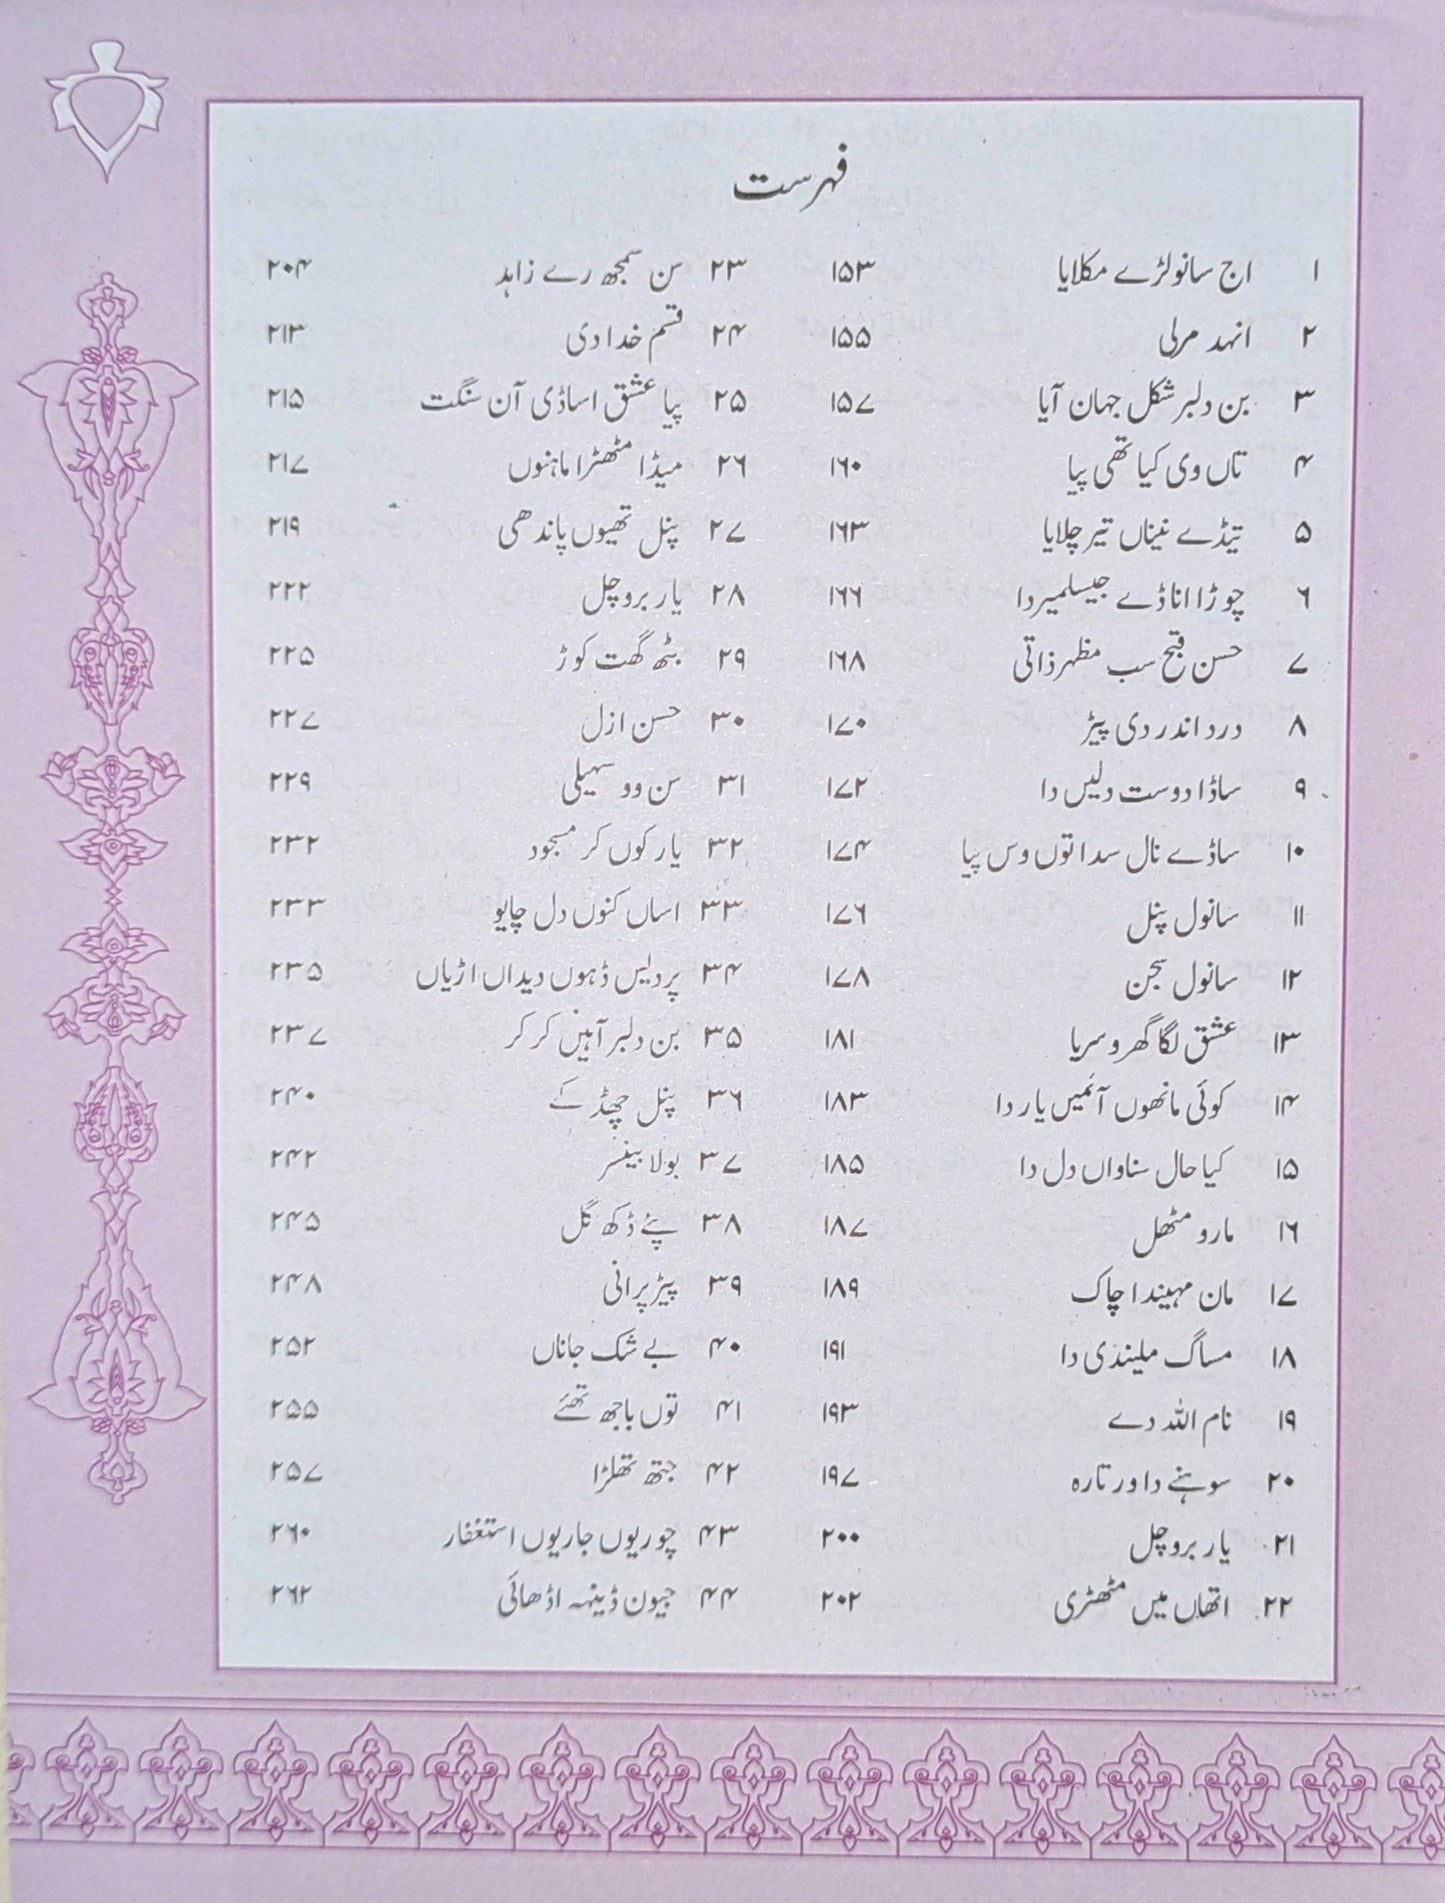 فہرست
۱ اج سانولڑے مکلایا ۱۵۳
۲ انہد مرلی ۱۵۵
۳ بن دلبر شکل جہان آیا ۱۵۷
۴ تاں وی کیا تھی پیا ۱۶۰
۵ تیڈے نیناں تیر چلایا ۱۶۳
۶ چوڑا اناڈے جیسلمیر دا ۱۶۶
۷ حسن قبح سب مظہر ذاتی ۱۶۸
۸ درد اندر دی پیڑ ۱۷۰
۹ ساڈا دوست دلیں دا ۱۷۲
۱۰ ساڈے نال سدا توں وس پیا ۱۷۴
۱۱ سانول پنل ۱۷۶
۱۲ سانول سجن ۱۷۸
۱۳ عشق لگا گھر وسریا ۱۸۱
۱۴ کوئی مانھوں آئمیں یار دا ۱۸۳
۱۵ کیا حال سناواں دل دا ۱۸۵
۱۶ مارو مٹھل ۱۸۷
۱۷ مان مہیندا چاک ۱۸۹
۱۸ مساگ ملیندی دا ۱۹۱
۱۹ نام اللہ دے ۱۹۳
۲۰ سوہنے دا ور تارہ ۱۹۷
۲۱ یار بروچل ۲۰۰
۲۲ اتھاں میں مٹھڑی ۲۰۲
۲۳ سن سمجھ رے زاہد ۲۰۴
۲۴ قسم خدا دی ۲۱۳
۲۵ پیا عشق اساڈی آن سنگت ۲۱۵
۲۶ میڈا مٹھڑا ماہنوں ۲۱۷
۲۷ پنل تھیوں پاندھی ۲۱۹
۲۸ یار بروچل ۲۲۲
۲۹ بٹھ گھت کوڑ ۲۲۵
۳۰ حسن ازل ۲۲۷
۳۱ سن وو سہیلی ۲۲۹
۳۲ یار کوں کر مسجود ۲۳۲
۳۳ اساں کنوں دل چایو ۲۳۳
۳۴ پردلیس ڈہوں دیداں اڑیاں ۲۳۵
۳۵ بن دلبر آہیں کر کر ۲۳۷
۳۶ پنل چھڈ کے ۲۴۰
۳۷ بولا بینسر ۲۴۲
۳۸ پئے ڈکھ گل ۲۴۵
۳۹ پیڑ پرانی ۲۴۸
۴۰ بے شک جاناں ۲۵۲
۴۱ توں باجھ تھئے ۲۵۵
۴۲ جتھ تھلڑا ۲۵۷
۴۳ چوریوں جاریوں استغفار ۲۶۰
۴۴ جیون ڈینہہ اڈھائی ۲۶۲